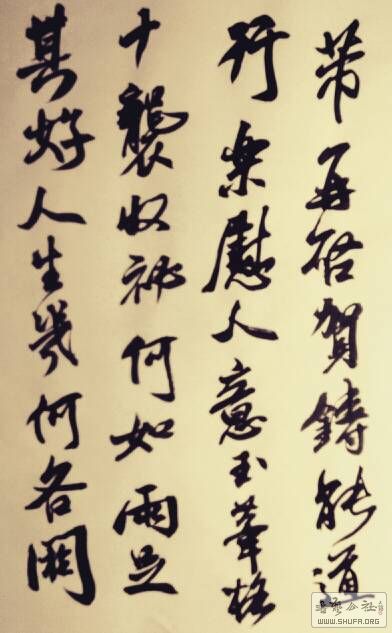 芾再啓賀鑄能道
行樂慰人意玉筆格
十襲收祕何如兩足
其好人生幾何各闕
WWW.SHUFA.ORG